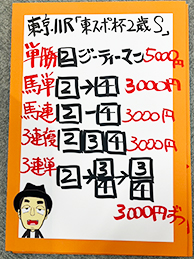 東京11R「東スポ杯2歳S」
単勝 2 ジーティーマン 5000円
馬単 2→4 3000円
馬連 2-4 3000円
3連複 2 3 4 3000円
3連単 2→3 4→3 4
3000円ずつ